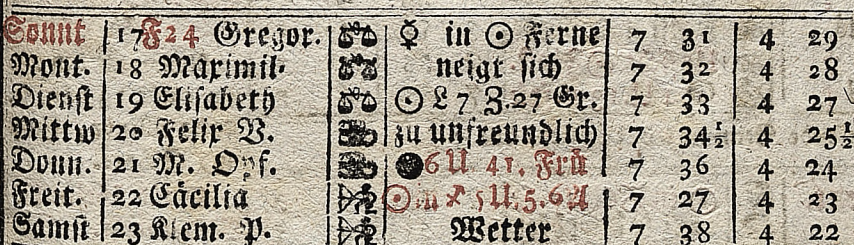 Sonnt 17 F24 Gregor. ☿ in ☉ Ferne 7 31 4 29
Mont. 18 Maximil. neigt sich 7 32 4 28
Dienst 19 Elisabeth ☉ L 7 Z. 27 Gr. 7 33 4 27
Mittw 20 Felix V. zu unfreundlich 7 34½ 4 25½
Donn. 21 M. Opf. ● 6 U. 41. Frü 7 36 4 24
Freit. 22 Cäcilia ☉ in ♐ 5 U. 5. 7 27 4 23
Samst 23 Klem. P. Wetter 7 38 4 22